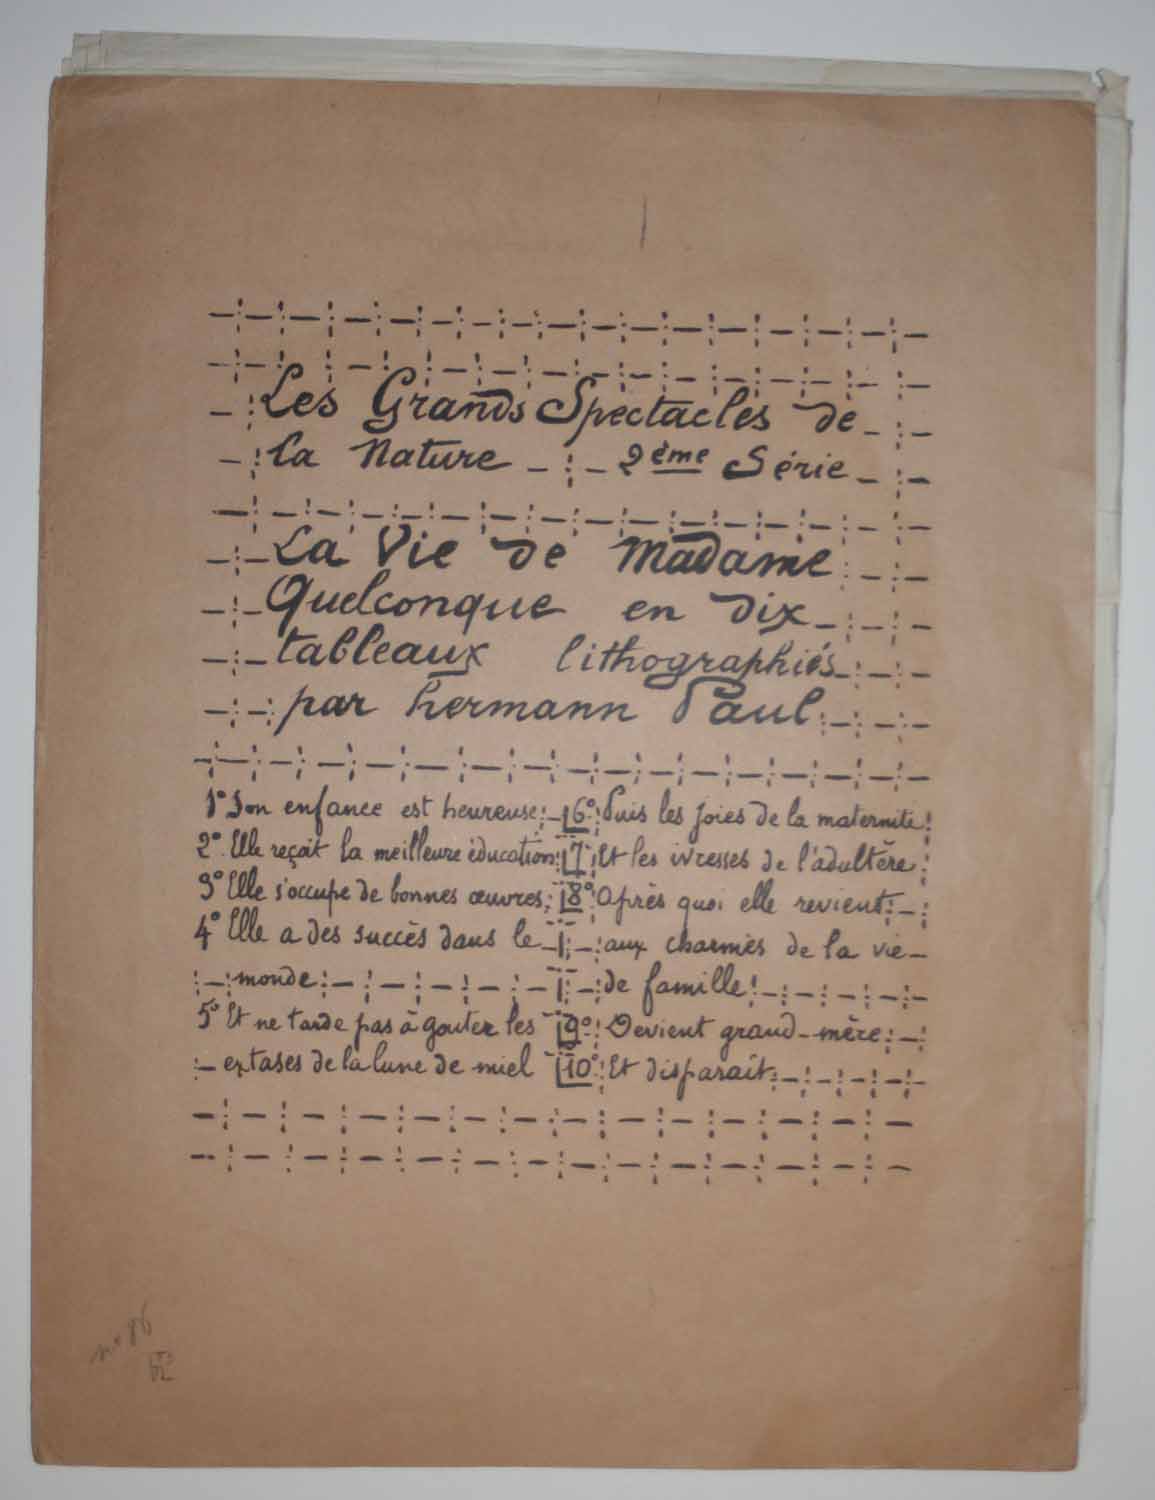 Les Grands Spectacles de
la Nature 2ème Série
La Vie de Madame
Quelconque en dix
tableaux lithographiés
par hermann Paul
1° Son enfance est heureuse
2° Elle reçoit la meilleure éducation
3° Elle s'occupe de bonnes œuvres
4° Elle a des succès dans le
monde
5° Et ne tarde pas à gouter les
extases de la lune de miel
6° Puis les joies de la maternité
7° Et les ivresses de l'adultère
8° Après quoi elle revient
aux charmes de la vie
de famille
9° Devient grand-mère
10° Et disparaît
n° 86